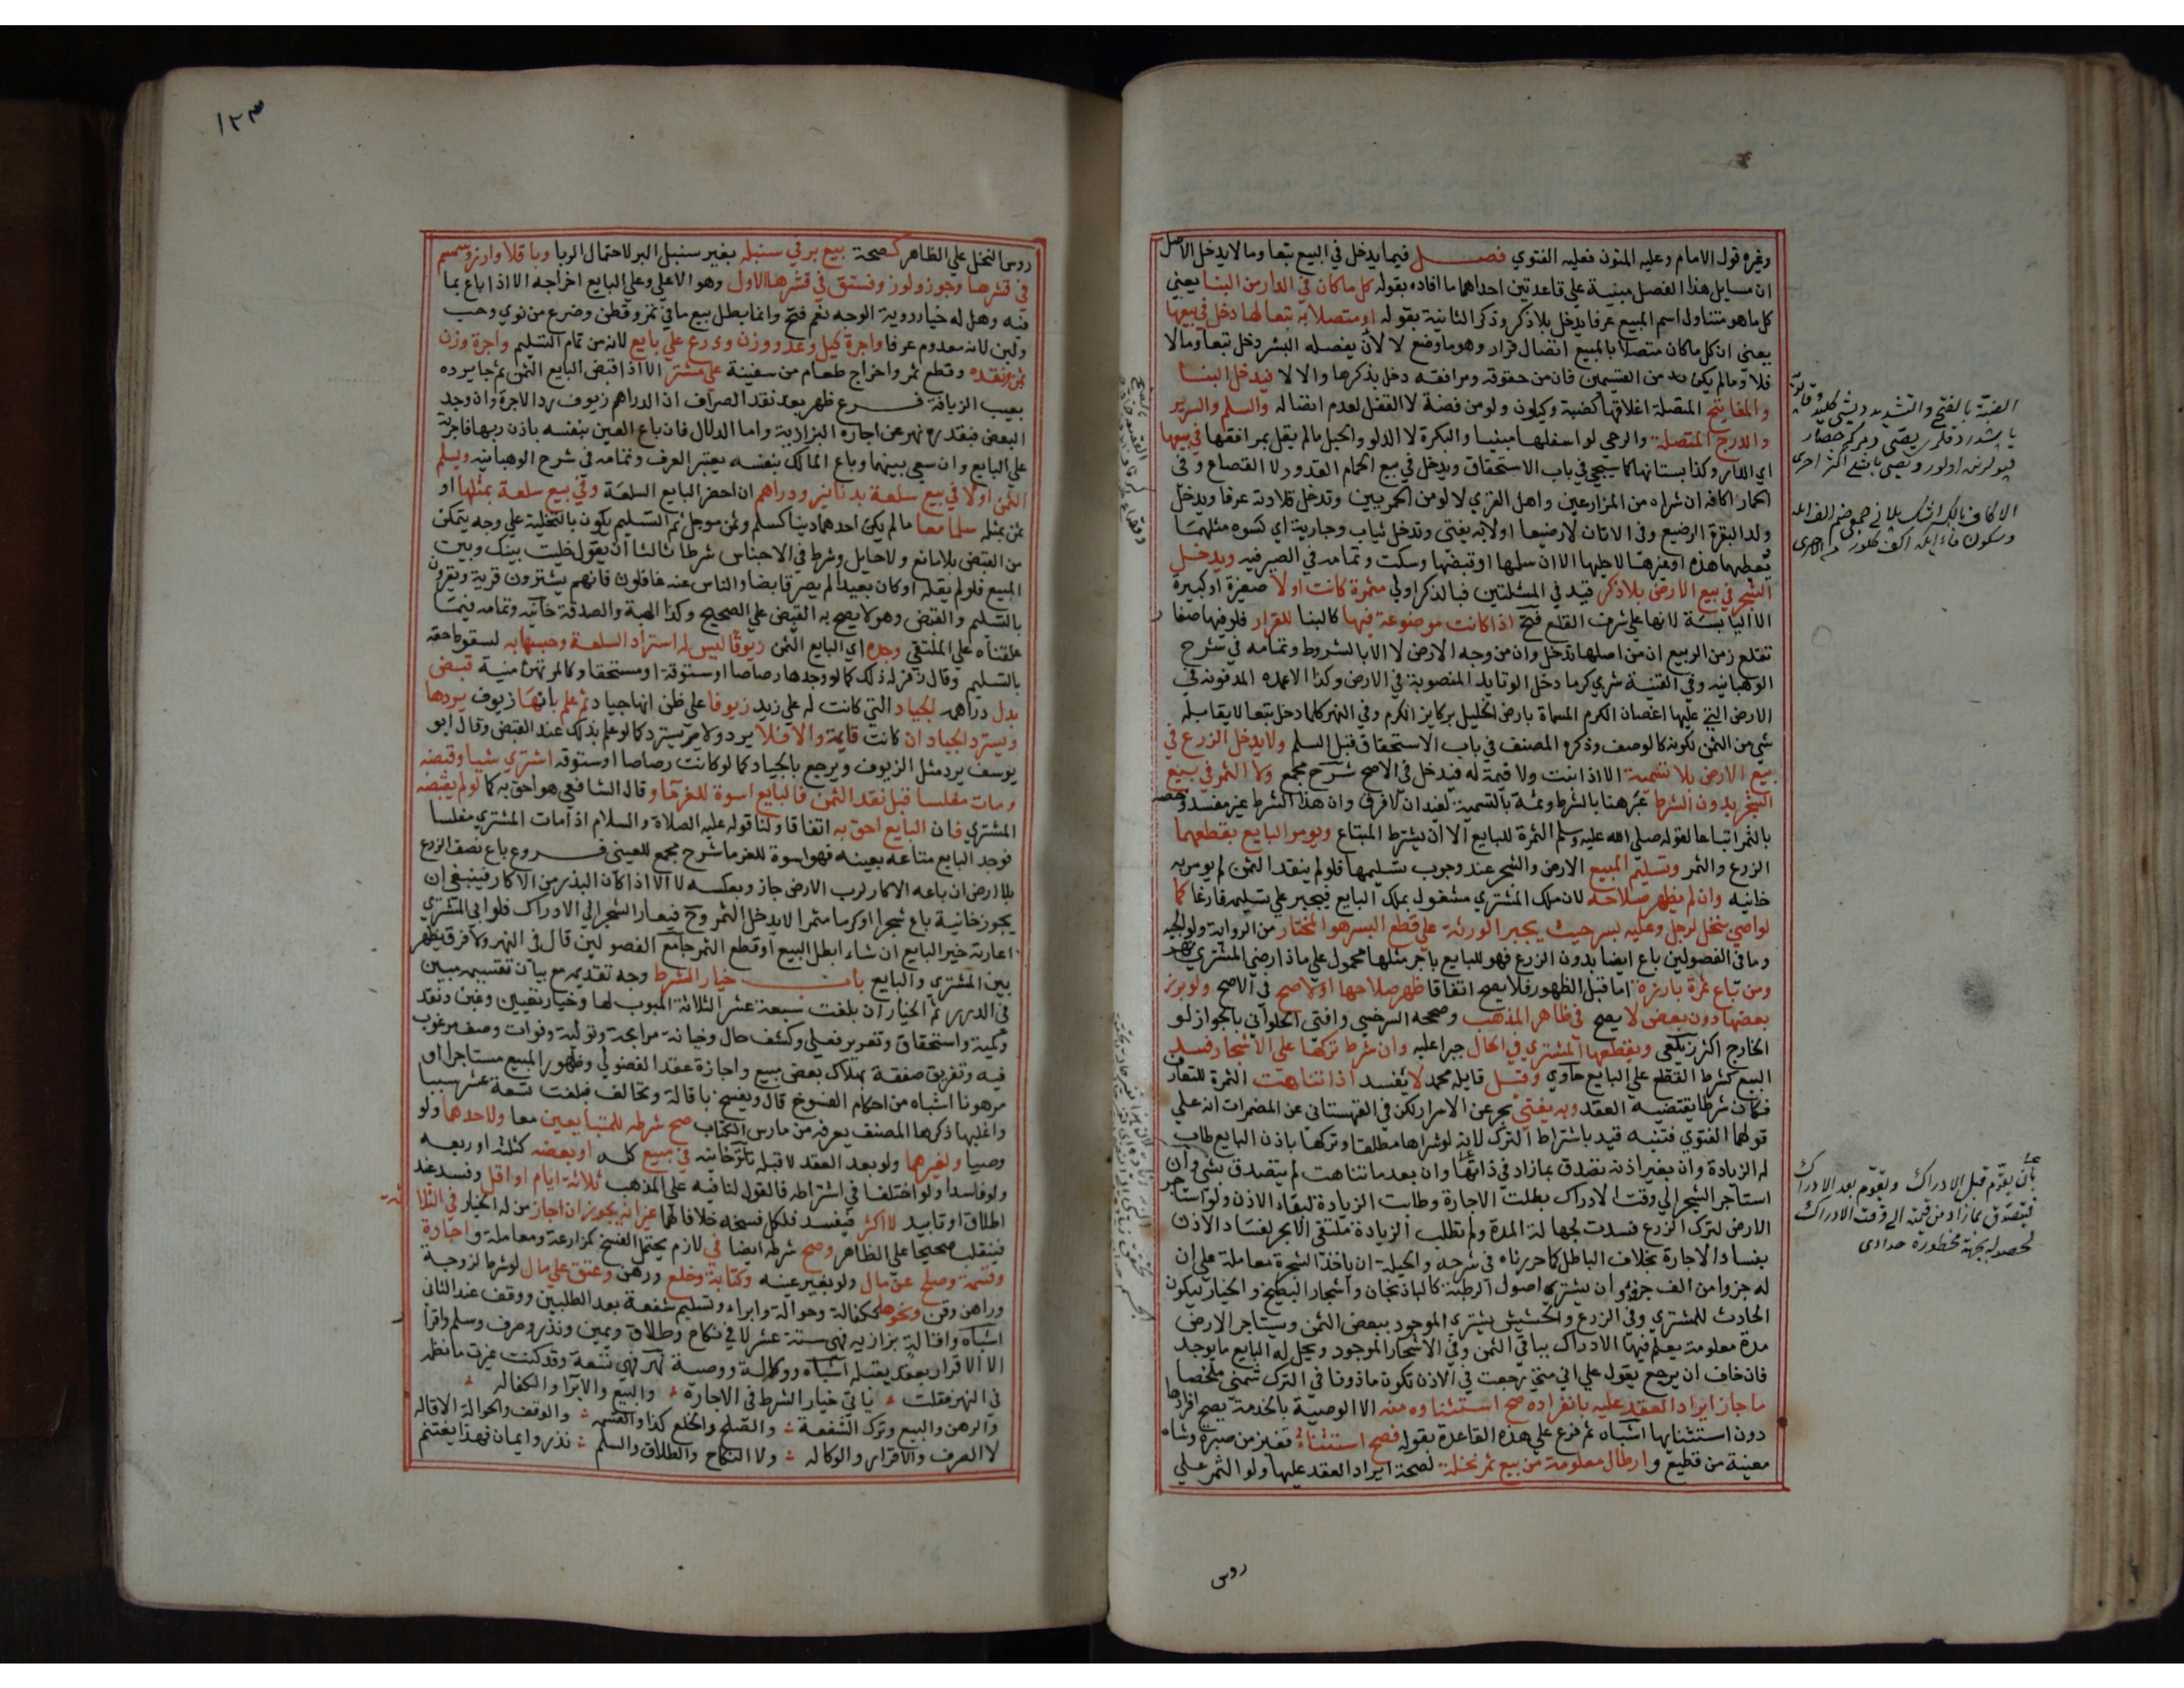 وغيره قول الامام وعليه المتون فعليه الفتوي فصل فيما يدخل في البيع تبعا وما لا يدخل الاصل
ان مسايل هذا الفصل مبنية علي قاعدتين احداهما ما افاده بقوله كل ما كان في الدار من البنا يعني
كل ما هو متناول اسم المبيع عرفا يدخل بلا ذكر وذكر الثانية بقوله او متصلا به تبعا لها دخل في بيعها
يعني ان كل ما كان متصلا بالمبيع اتصال قرار وهو ما وضع لا لان يفصله البشر دخل تبعا وما لا
فلا وما لم يكن من القسمين فان من حقوقه ومرافقه دخل بذكرها والا لا فيدخل البنا
والمفاتيح المتصلة اغلاقها كضبة وكيلون ولو من فضة لا القفل لعدم اتصاله والسلم والسرير
والدرج المتصلة والرحي لو اسفلها مبنيا والبكرة لا الدلو والحبل ما لم يقل بمرافقها في بيعها
اي الدار وكذا بستانها كما سيجي في باب الاستحقاق ويدخل في بيع الحمام القدور لا القصاع وفي
الحمار اكافه ان شراه من المزارعين واهل القري لا لو من الحمريين وتدخل قلادته عرفا ويدخل
ولد البقرة الرضيع وفي الاتان لا رضيعا اولا به يفتي وتدخل ثياب وجارية اي كسوة مثلهما
يعطيهما هذه او غيرها لا حليها الا ان سلمها او قبضها وسكت وتمامه في الصيرفيه ويدخل
الشجر في بيع الارض بلا ذكر قيد في المسئلتين فبالذكر اولي مثمرة كانت اولا صغيرة او كبيرة
الا اليابسة لانها علي شرف القلع فتح اذا كانت موضوعة فيها كالبنا للقرار فلو فيها صغار
تقلع زمن الربيع ان من اصلها تدخل وان من وجه الارض لا الا بالشروط وتمامه في شرح
الوهبانيه وفي القنية شري كرما دخل الوتايد المنصوبة في الارض وكذا الاعمده المدفونه في
الارض التي عليها اغصان الكرم المسماة بارض الخليل بركايز الكرم وفي النهر كلما دخل تبعا لا يقابله
شي من الثمن لكونه كالوصف وذكره المصنف في باب الاستحقاق قبل السلم ولا يدخل الزرع في
بيع الارض بلا تسمية الا اذا نبت ولا قيمة له فيدخل في الاصح شرح مجمع ولا الثمر في بيع
الشجر بدون الشرط عبر هنا بالشرط وثمة بالتسمية ليفيد ان لا فرق وان هذا الشرط غير مفسد وخصه
بالثمر اتباعا لقوله صلي الله عليه وسلم الثمرة للبايع الا ان يشترط المبتاع ويومر البايع بقطعهما
الزرع والثمر وتسليم المبيع الارض والشجر عند وجوب تسليمها فلو لم ينقد الثمن لم يومر به
خانيه وان لم يظهر صلاحه لان ملك المشتري مشغول بملك البايع فيجبر علي تسليمه فارغا كما
لو اوصي بنخل لرجل وعليه بسر حيث يجبر الورثة علي قطع البسر هو المختار من الرواية ولوالجيه
وما في الفصولين باع ارضا بدون الزرع فهو للبايع باجر مثلها محمول علي ما اذا رضي المشتري نهر
ومن باع ثمرة بارزة اما قبل الظهور فلا يصح اتفاقا ظهر صلاحها اولا صح في الاصح ولو برز
بعضها دون بعض لا يصح في ظاهر المذهب وصححه السرخسي وافتي الحلواني بالجواز لو
الخارج اكثر زيلعي ويقطعها المشتري في الحال جبرا عليه وان شرط تركها علي الاشجار فسد
البيع كشرط القطع علي البايع حاوي وقيل قايله محمد لا يفسد اذا تناهت الثمرة للتعارف
فكان شرطا يقتضيه العقد وبه يفتي بحر عن الاسرار لكن في القهستاني عن المضمرات انه علي
قولهما الفتوي فتنبه قيد باشتراط الترك لانه لو شراها مطلقا وتركها باذن البايع طاب
له الزيادة وان بغير اذنه تصدق بما زاد في ذاتها وان بعد ما تناهت لم يتصدق بشي وان
استاجر الشجر الي وقت الادراك بطلت الاجارة وطابت الزيادة لبقاء الاذن ولو استاجر
الارض لترك الزرع فسدت لجهالة المدة ولم تطلب الزيادة ملتقي الابحر لفساد الاذن
بفساد الاجارة بخلاف الباطل كما حررناه في شرحه والحيلة ان ياخذ الشجرة معاملة علي ان
له جزوا من الف جزو وان يشتري اصول الرطبة كالباذنجان واشجار البطيخ والخيار ليكون
الحادث للمشتري وفي الزرع والحشيش يشتري الموجود ببعض الثمن ويستاجر الارض
مدة معلومة يعلم فيها الادراك بباقي الثمن وفي الاشجار الموجود ويحل له البايع ما يوجد
فان خاف ان يرجع يقول علي اني متي رجعت في الاذن تكون ماذونا في الترك شمني ملخصا
ما جاز ايراد العقد عليه بانفراده صح استثناوه منه الا الوصية بالخدمة يصح افرادها
دون استثنايها اشباه ثم فرع علي هذه القاعدة بقوله فصح استثناء قفيز من صبرة وشاة
معينة من قطيع وارطال معلومة من بيع ثمر نخلة لصحة ايراد العقد عليها ولو الثمر علي
روس
الضبة بالفتح والتشديد
بان يقوم قبل الادراك ويقوم بعد الادراك
فيتصدق بما زاد من قيمته الي وقت الادراك
لحصوله بجهة محظورة حدادي
١٢٣
روس النخل علي الظاهر كصحة بيع بر في سنبله بغير سنبل البر لاحتمال الربا وباقلا وارز وسمسم
في قشرها وجوز ولوز وفستق في قشرها الاول وهو الاعلي وعلي البايع اخراجه الا اذا باع بما
فيه وهل له خيار روية الوجه نعم فتح وانما بطل بيع ما في تمر وقطن وضرع من نوي وحب
ولبن لانه معدوم عرفا واجرة كيل وعد ووزن وذرع علي بايع لانه من تمام التسليم واجرة وزن
ثمن ونقده وقطع ثمر واخراج طعام من سفينة علي مشتر الا اذا قبض البايع الثمن ثم جا يرده
بعيب الزيافة فرع ظهر بعد نقد الصراف ان الدراهم زيوف رد الاجرة وان وجد
البعض فبقدره نهر عن اجارة البزازية واما الدلال فان باع العين بنفسه باذن ربها فاجرته
علي البايع وان سعي بينهما وباع المالك بنفسه يعتبر العرف وتمامه في شرح الوهبانيه ويسلم
الثمن اولا في بيع سلعة بدنانير ودراهم ان احضر البايع السلعة وفي بيع سلعة بمثلها او
ثمن بمثله سلما معا ما لم يكن احدهما دينا كسلم وثمن موجل ثم التسليم يكون بالتخلية علي وجه يتمكن
من القبض بلا مانع ولا حايل وشرط في الاجناس شرطا ثالثا ان يقول خليت بينك وبين
المبيع فلو لم يقله او كان بعيدا لم يصر قابضا والناس عنه غافلون فانهم يشترون قرية ويقرون
بالتسليم والقبض وهو لا يصح به القبض علي الصحيح وكذا الهبة والصدقة خانيه وتمامه فيما
علقناه علي الملتقي وجد اي البايع الثمن زيوفا ليس له استرداد السلعة وحبسها به لسقوط حقه
بالتسليم وقال زفر له ذلك كما لو وجدها رصاصا او ستوقة او مستحقا وكالمرتهن منية قبض
بدل دراهمه الجياد التي كانت له علي زيد زيوفا علي ظن انها جياد ثم علم بانها زيوف يردها
ويسترد الجياد ان كانت قايمة والا فلا يرد ولا يسترد كما لو علم بذلك عند القبض وقال ابو
يوسف يرد مثل الزيوف ويرجع بالجياد كما لو كانت رصاصا او ستوقه اشتري شيا وقبضه
ومات مفلسا قبل نقد الثمن فالبايع اسوة للغرما وقال الشافعي هو احق به كما لو لم يقبضه
المشتري فان البايع احق به اتفاقا ولنا قوله عليه الصلاة والسلام اذا مات المشتري مفلسا
فوجد البايع متاعه بعينه فهو اسوة للغرما شرح مجمع للعيني فروع باع نصف الزرع
بلا ارض ان باعه الاكار لرب الارض جاز وبعكسه لا الا اذا كان البذر من الاكار فينبغي ان
يجوز خانية باع شجرا او كرما مثمرا لا يدخل الثمر وح فيعار الشجر الي الادراك فلو ابي المشتري
اعارته خير البايع ان شاء ابطل البيع او قطع الثمر جامع الفصولين قال في النهر ولا فرق يظهر
بين المشتري والبايع باب خيار الشرط وجه تقديمه مع بيان تقسيمه مبين
في الدرر ثم الخيارات بلغت سبعة عشر الثلاثة المبوب لها وخيار تعيين وغبن ونقد
وكمية واستحقاق وتغرير فعلي وكشف حال وخيانة مرابحة وتولية وفوات وصف مرغوب
فيه وتفريق صفقة بهلاك بعض مبيع واجازة عقد الفضولي وظهور المبيع مستاجرا او
مرهونا اشباه من احكام الفسوخ قال ويفسخ باقالة وتحالف فبلغت تسعة عشر سببا
واغلبها ذكرها المصنف يعرفه من مارس الكتاب صح شرطه للمتبايعين معا ولاحدهما ولو
وصيا ولغيرهما ولو بعد العقد لا قبله تاترخانيه في مبيع كله او بعضه كثلثه او ربعه
ولو فاسدا ولو اختلفا في اشتراطه فالقول لنافيه علي المذهب ثلاثة ايام او اقل وفسد عند
اطلاق او تابيد لا اكثر فيفسد فلكل فسخه خلافا لهما غير انه يجوز ان اجاز من له الخيار في الثلاثة
فينقلب صحيحا علي الظاهر وصح شرطه ايضا في لازم يحتمل الفسخ كمزارعة ومعاملة واجارة
وقسمة وصلح عن مال ولو بغير عينه وكتابة وخلع ورهن وعتق علي مال لو شرط لزوجة
وراهن وقن ونحوها ككفالة وحوالة وابراء وتسليم شفعة بعد الطلبين ووقف عند الثاني
اشباه واقالة بزازيه فهي ستة عشر لا في نكاح وطلاق ويمين ونذر وصرف وسلم واقرار
الا الاقرار بعقد يقبله اشباه ووكالة ووصية نهر فهي تسعة وقد كنت غيرت ما نظمه
في النهر فقلت ؞ ياتي خيار الشرط في الاجارة ؞ والبيع والابرا والكفاله ؞
والرهن والبيع وترك الشفعة ؞ والصلح والخلع كذا والقسمه ؞ والوقف والحوالة الاقاله
لا الصرف والاقرار والوكاله ؞ ولا النكاح والطلاق والسلم ؞ نذر وايمان فهذا يغتنم